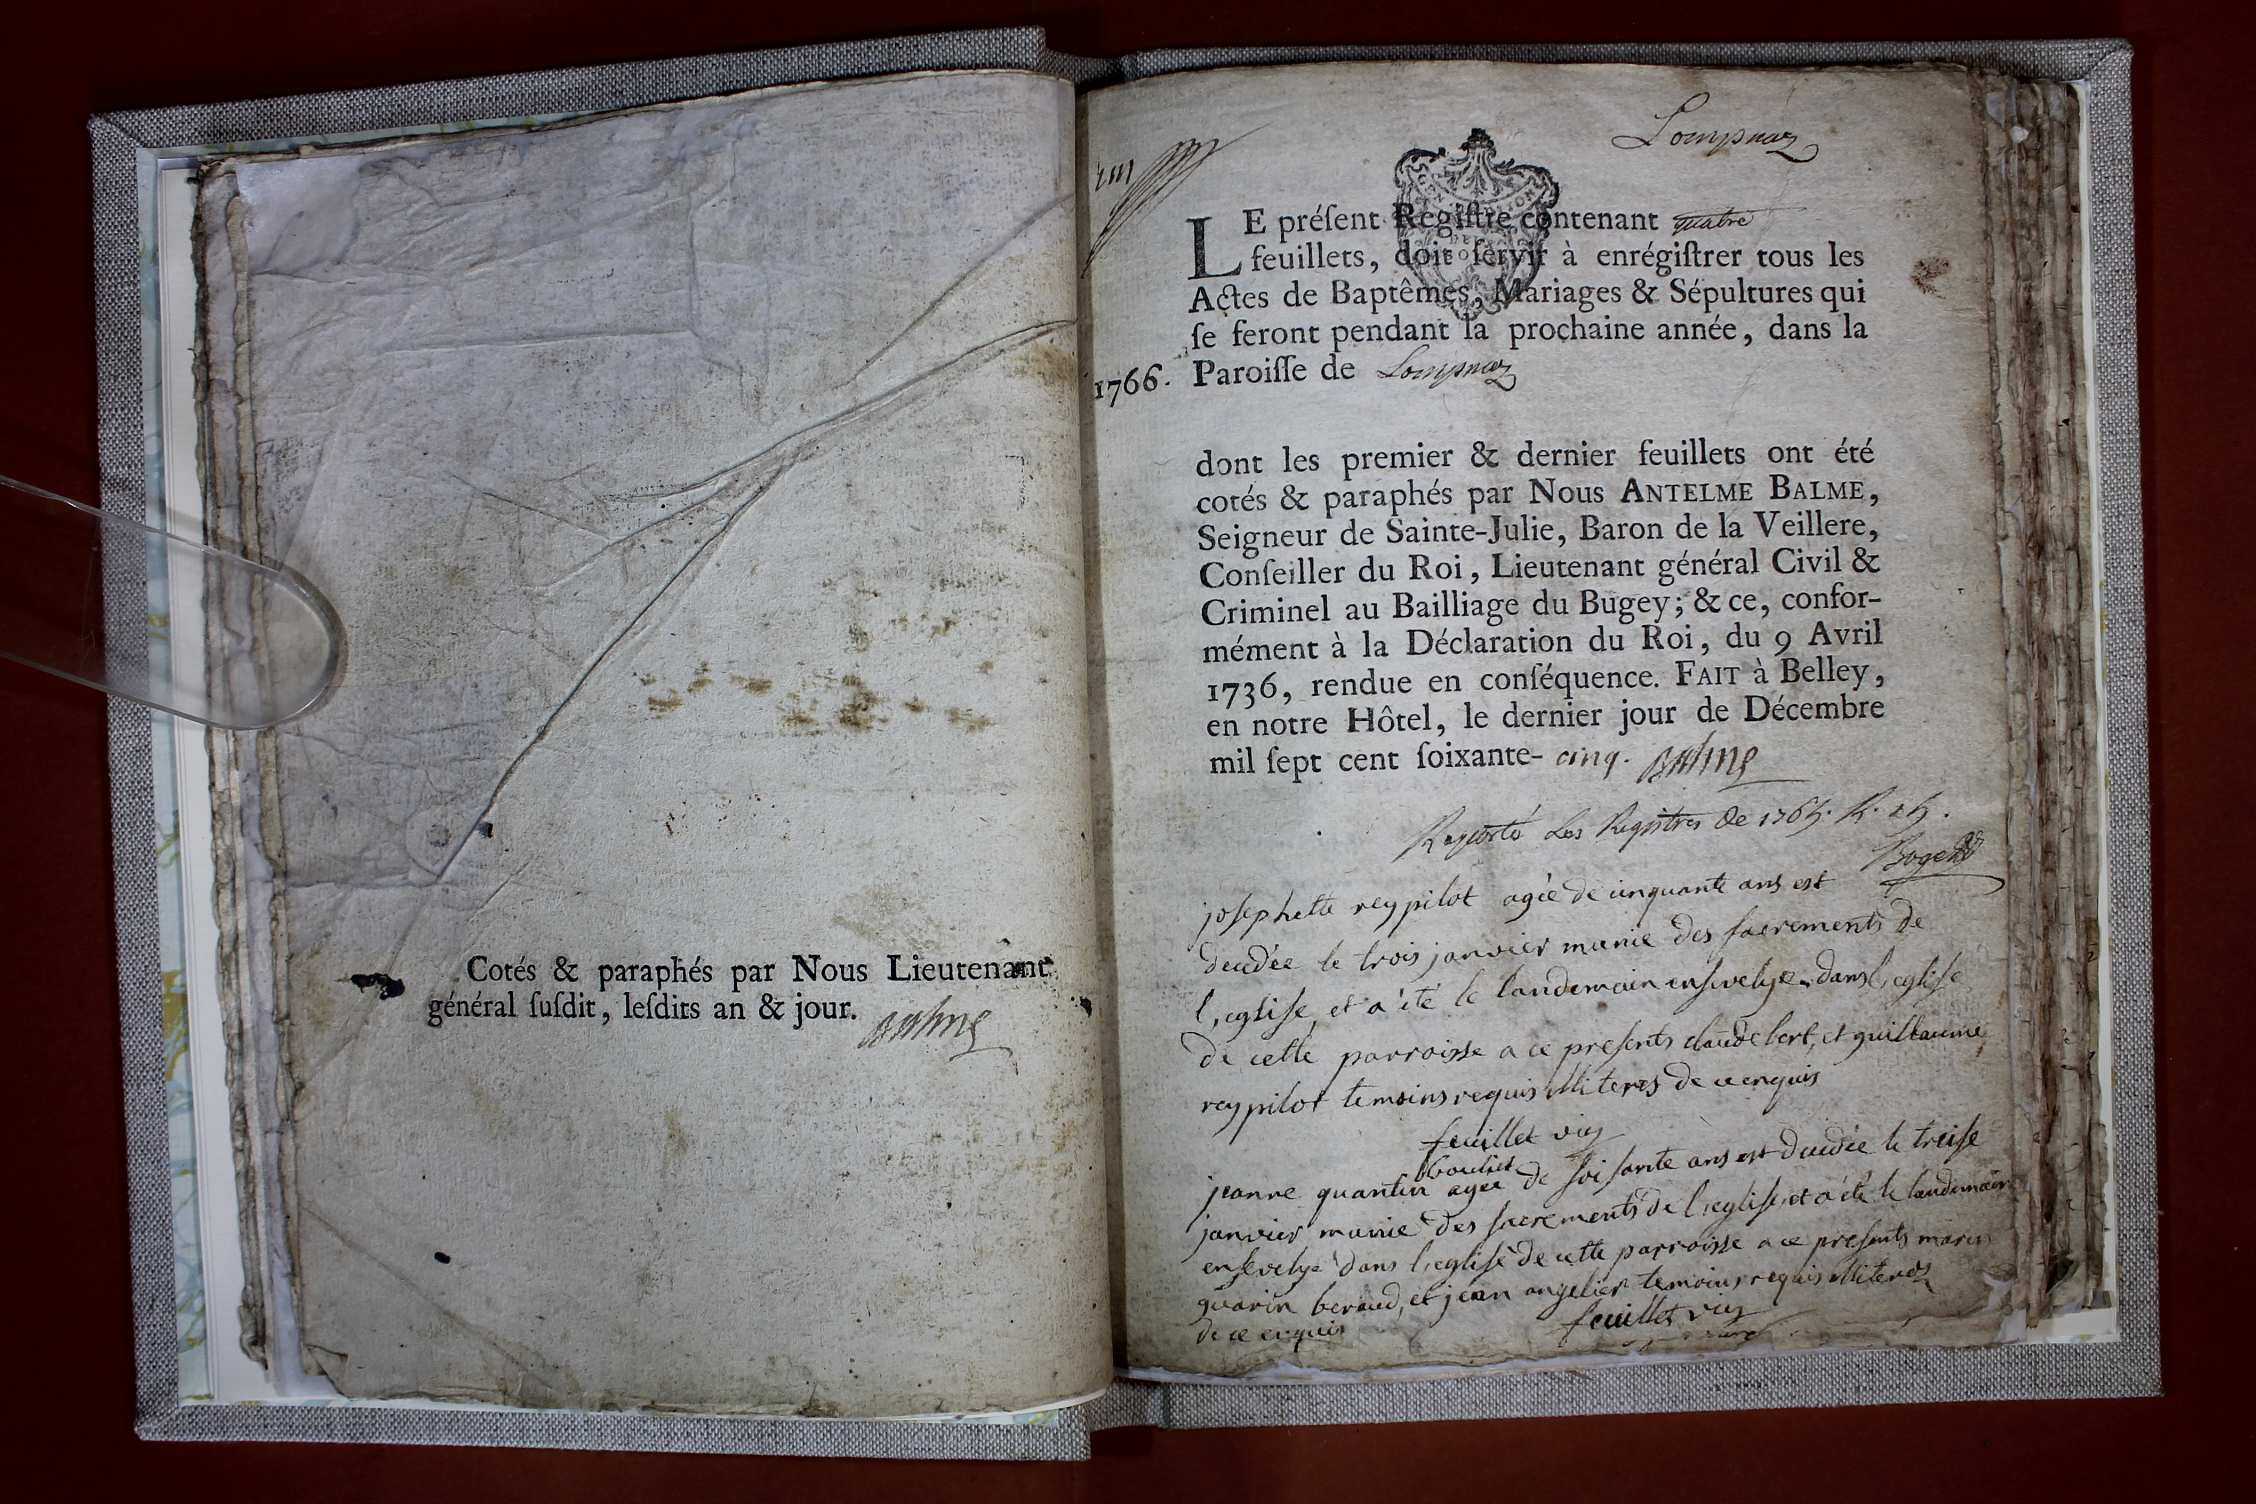 Cotés & paraphés par Nous Lieutenant
général ſuſdit, leſdits an & jour.
Balme
Lompnaz
LE préſent Regiſtre contenant quatre
feuillets, doit ſervir à enrégiſtrer tous les
Actes de Baptêmes, Mariages & Sépultures qui
ſe feront pendant la prochaine année, dans la
1766. Paroiſſe de Lompnaz
dont les premier & dernier feuillets ont été
cotés & paraphés par Nous ANTELME BALME,
Seigneur de Sainte-Julie, Baron de la Veillere,
Conſeiller du Roi, Lieutenant général Civil &
Criminel au Bailliage du Bugey; & ce, confor-
mément à la Déclaration du Roi, du 9 Avril
1736, rendue en conſéquence. FAIT à Belley,
en notre Hôtel, le dernier jour de Décembre
mil ſept cent ſoixante- cinq. Balme
Raporté Les Registres de 1765.
josephette reypilot agée de cinquante ans est
decedée le trois janvier munie des sacrements de
l'eglise et a été le landemain ensevelye dans l'eglise
de cette parroisse a ce presents claude bert, et guillaume
reypilot temoins requis illiteres de ce enquis
feuillet vic
bouliet
jeanne quantin agee de soisante ans est decedée le treise
janvier munie des sacrements de l'eglise, et a été le landemain
ensevelye dans l'eglise de cette parroisse a ce presents
guarin beraud, et jean angelier temoins requis illiteres
de ce enquis feuillet vic